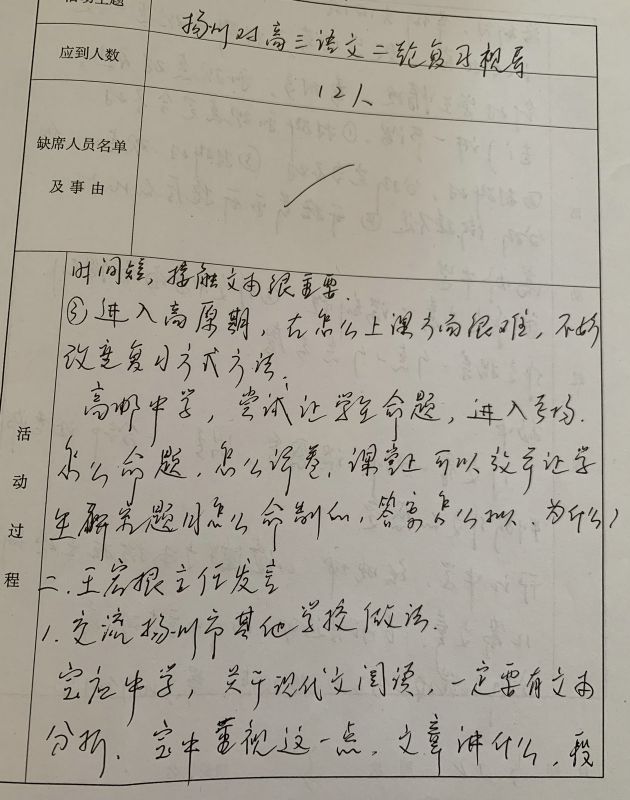 活动主题
扬州对高三语文二轮复习视导
应到人数
12人
缺席人员名单
及事由
时间短，接触文本很重要。
③进入高原期，在怎么上课方面很难，不妨
改变复习方式方法。
高邮中学，尝试让学生命题，进入考场。
怎么命题，怎么评卷，课堂上可以放手让学
生研究题目怎么命制的，答案怎么拟，为什么？
活动过程
二.王宏根主任发言
1.交流扬州市其他学校做法.
宝应中学，关于现代文阅读，一定要有文本
分析。宝中重视这一点，文章讲什么，段